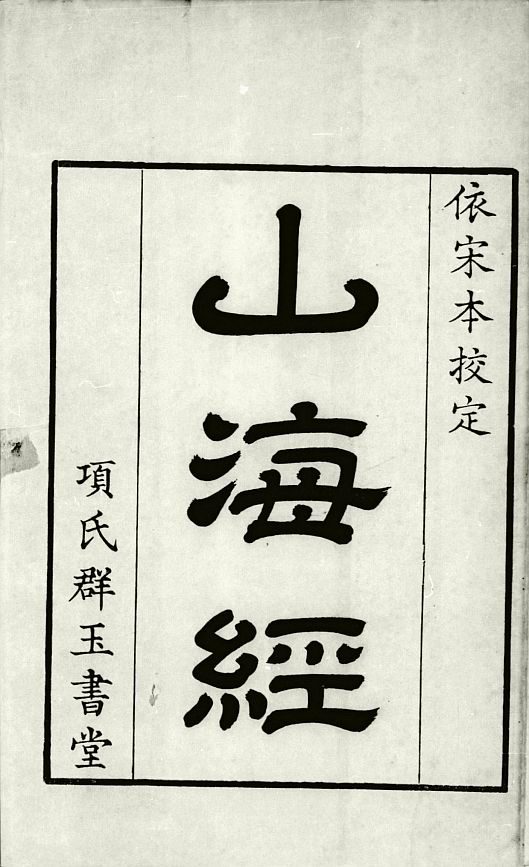 依宋本挍定
山海經
項氏群玉書堂